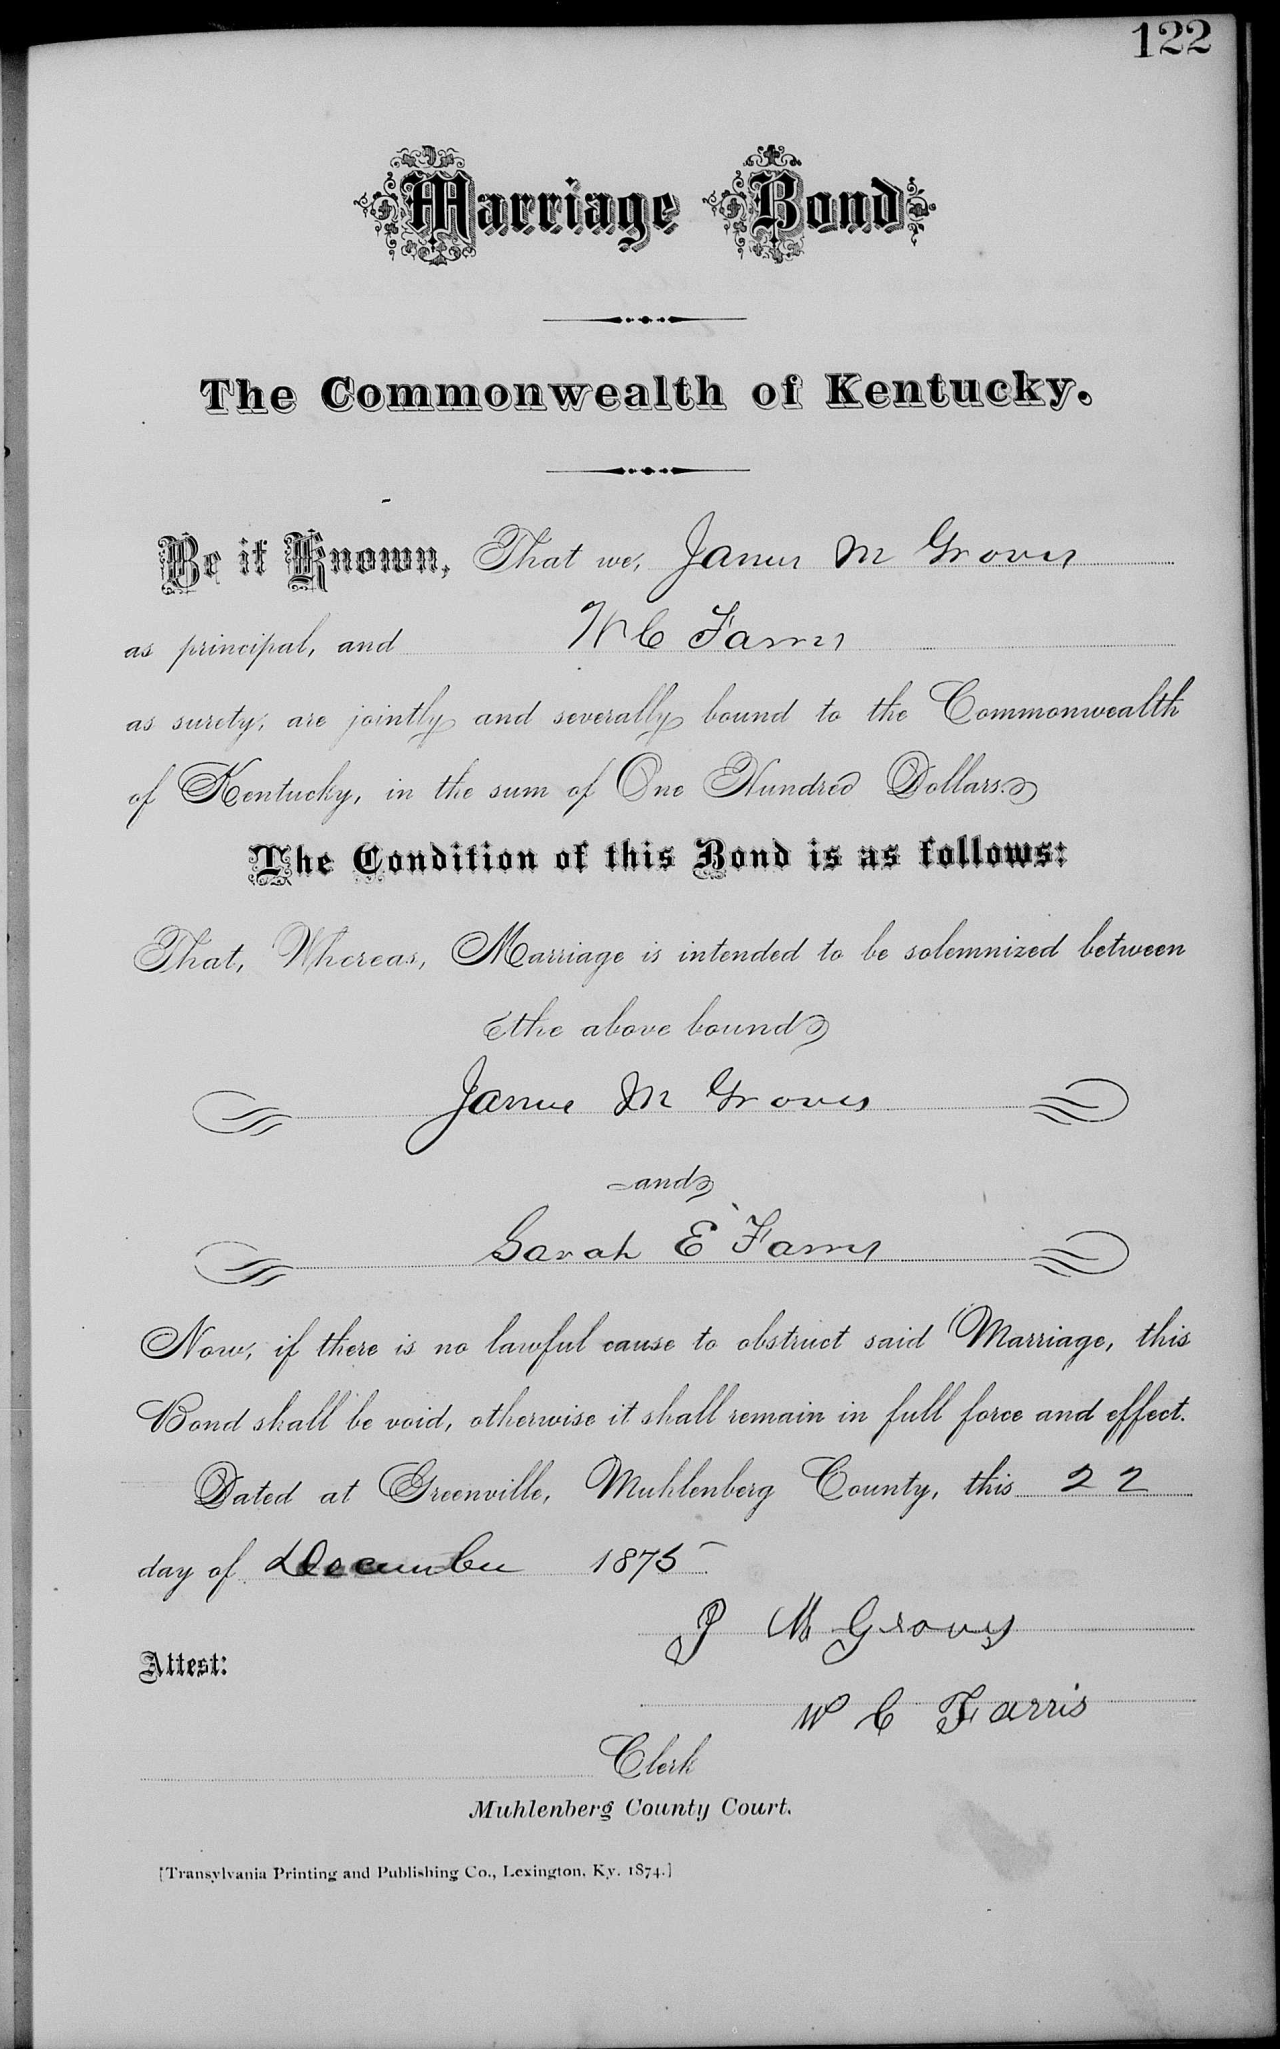 122
Marriage Bond
The Commonwealth of Kentucky.
Be it Known, That we, James M Groves
as principal, and W C Farris
as surety, are jointly and severally bound to the Commonwealth
of Kentucky, in the sum of One Hundred Dollars.
The Condition of this Bond is as follows:
That, Whereas, Marriage is intended to be solemnized between
the above bound
James M Groves
and
Sarah E Farris
Now, if there is no lawful cause to obstruct said Marriage, this
Bond shall be void, otherwise it shall remain in full force and effect.
Dated at Greenville, Muhlenberg County, this 22
day of December 1875
J M Groves
Attest:
W C Farris
Clerk
Muhlenberg County Court.
[Transylvania Printing and Publishing Co., Lexington, Ky. 1874.]